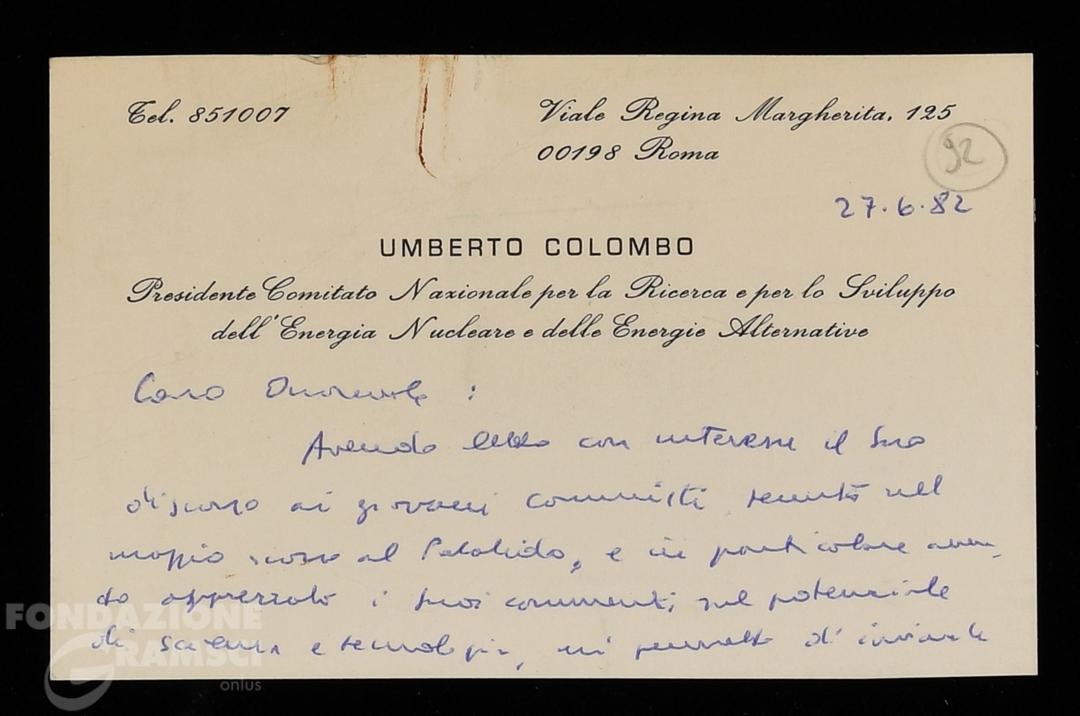 Tel. 851007
Viale Regina Margherita, 125
00198 Roma
92
27.6.82
UMBERTO COLOMBO
Presidente Comitato Nazionale per la Ricerca e per lo Sviluppo
dell'Energia Nucleare e delle Energie Alternative
Caro Onorevole :
Avendo letto con interesse il Suo
discorso ai giovani comunisti tenuto nel
maggio scorso al Palalido, e in particolare aven-
do apprezzato i Suoi commenti sul potenziale
di scienza e tecnologia, mi permetto d'inviarle
FONDAZIONE
GRAMSCI
onlus